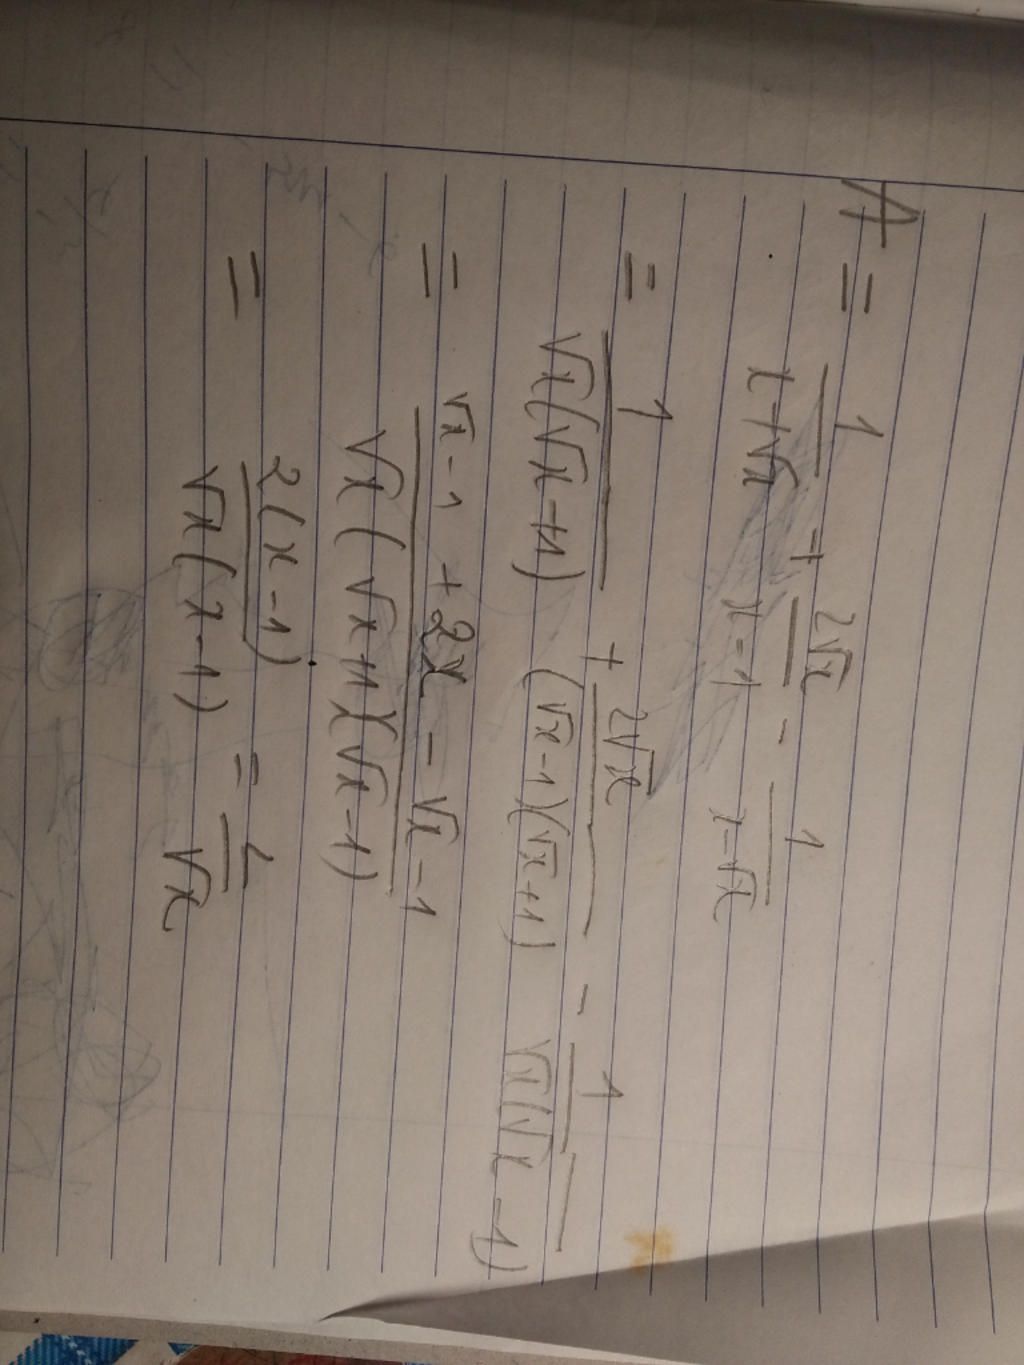 A = 1/(x+√x) + 2√x/(x-1) - 1/(x-√x)
= 1/(√x(√x+1)) + 2√x/((√x-1)(√x+1)) - 1/(√x(√x-1))
= (√x-1 + 2x - √x-1)/(√x(√x+1)(√x-1))
= 2(x-1)/(√x(x-1)) = 2/√x